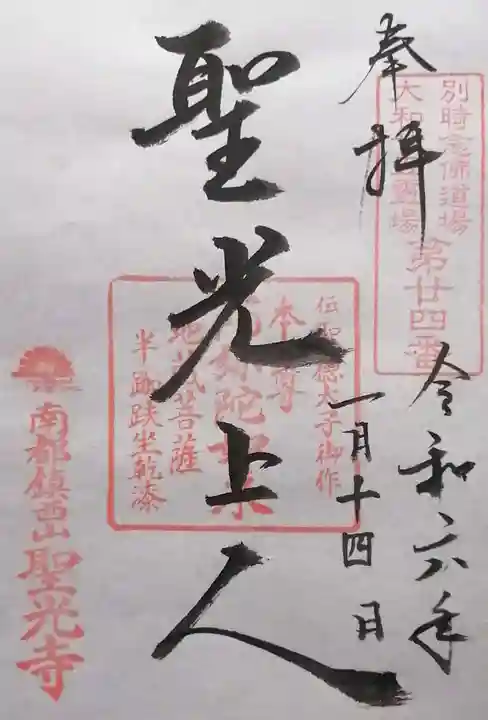 奉拝
別時念佛道場
大和 霊場
第廿四番
令和六年
一月十四日
聖光上人
伝聖徳太子御作
本尊
阿弥陀如来
地蔵菩薩
半跏趺坐乾漆
南都鎮西山
聖光寺